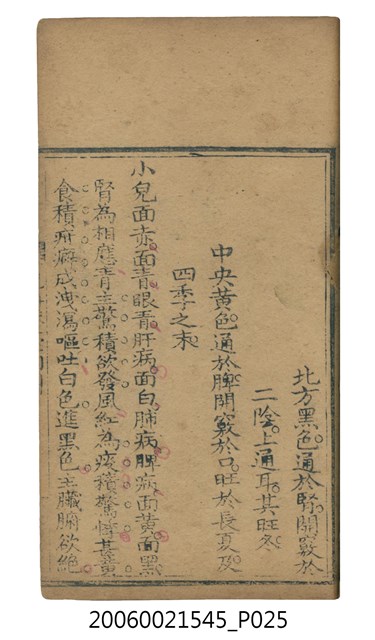 北方黑色通於腎開竅於
二陰上通耳其旺冬
中央黃色通於脾開竅於口旺於長夏及
四季之末
小兒面赤面青眼青肝病面白肺病脾病面黃面黑
腎為相應青主驚積欲發風紅為痰積驚悸甚黃
食積疳癖成洩瀉嘔吐白色進黑色主臟腑欲絕
20060021545_P025